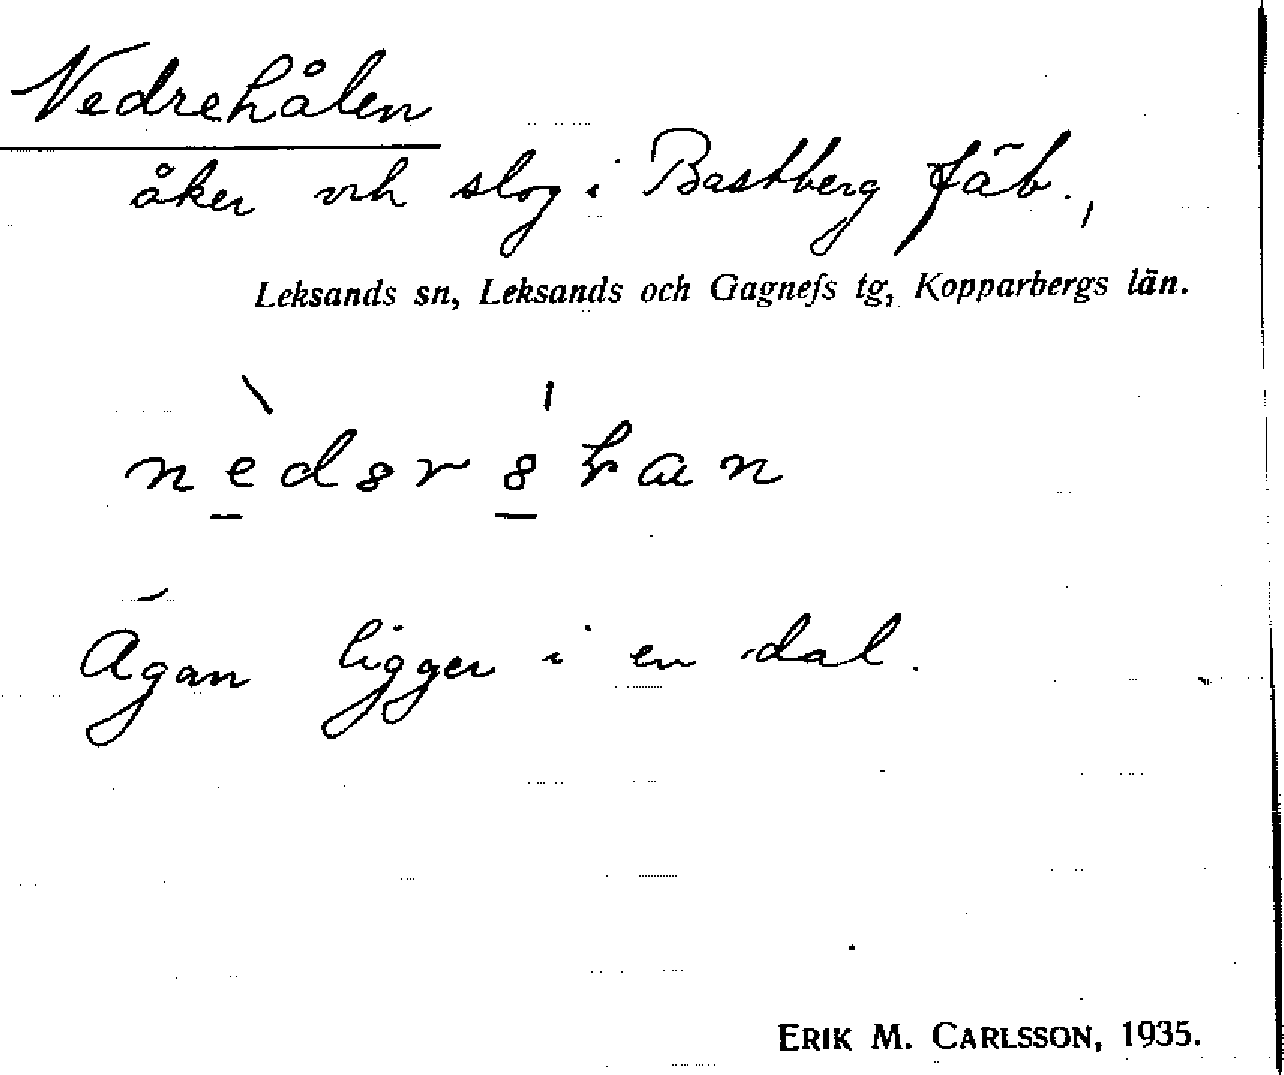 Nedrehålen
åker och slog i Bastberg fäb.,
Leksands sn, Leksands och Gagnefs tg, Kopparbergs län.
Ägan ligger i en dal.
ERIK M. CARLSSON, 1935.